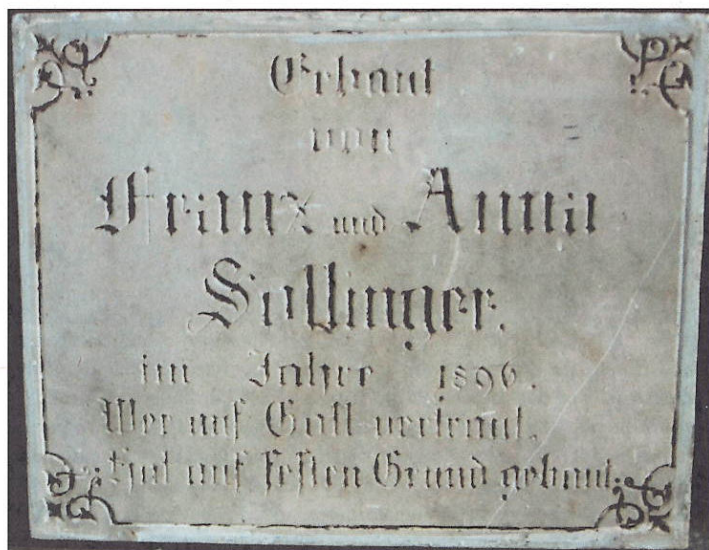 Erbaut
von
Franz und Anna
Sollinger.
im Jahre 1896.
Wer auf Gott vertraut,
Hat auf festen Grund gebaut.